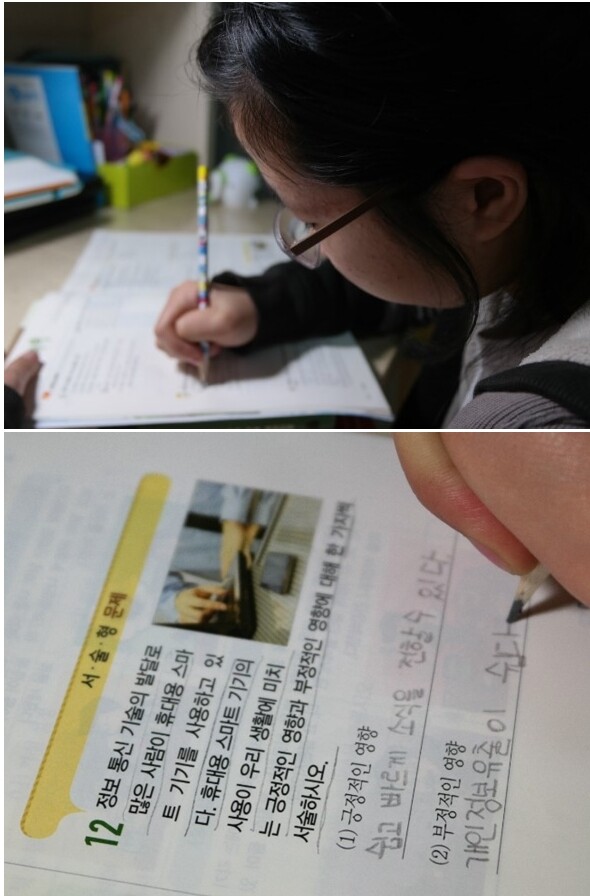 서·술·형 문제
12 정보 통신 기술의 발달로
많은 사람이 휴대용 스마
트 기기를 사용하고 있
다. 휴대용 스마트 기기의
사용이 우리 생활에 미치
는 긍정적인 영향과 부정적인 영향에 대해 한 가지씩
서술하시오.
(1) 긍정적인 영향
쉽고 빠르게 소식을 전할 수 있다.
(2) 부정적인 영향
개인정보유출이 쉽다